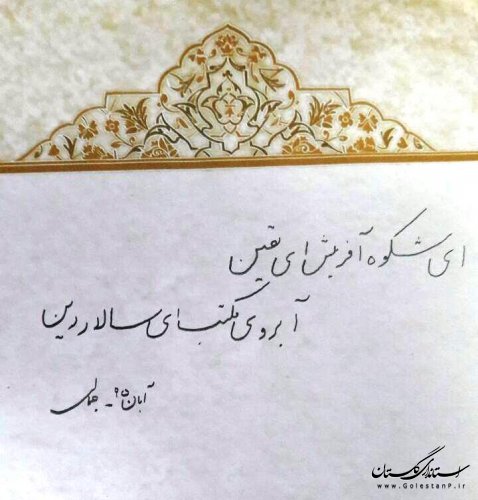 ای شکوه آفرینش ای یقین
آبروی مکتب ای سالار دین
آبان ۹۵ - جمالی
استانداری گلستان
www.GolestanP.ir